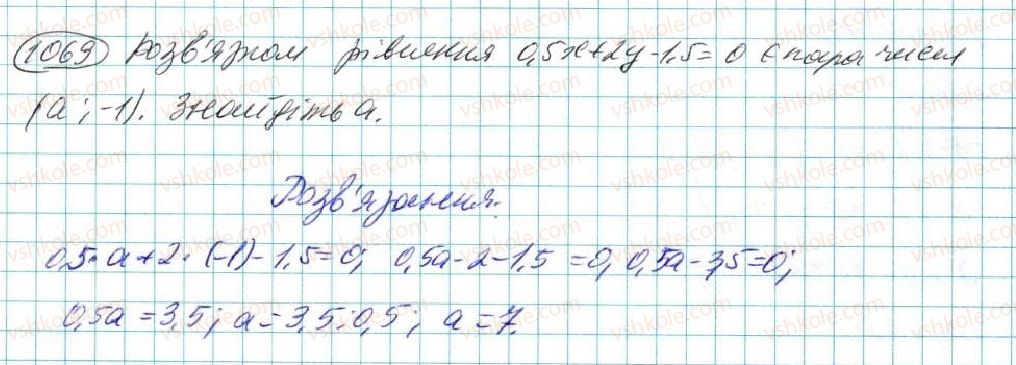 1069 Розв'язком рівняння 0,5x+2y-1,5=0 є пара чисел
(a; -1). Знайдіть a.
Розв'язання.
0,5·a+2·(-1)-1,5=0; 0,5a-2-1,5=0; 0,5a-3,5=0;
0,5a=3,5; a=3,5:0,5; a=7.